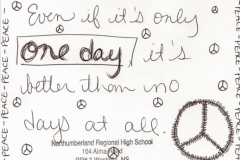 PEACE-PEACE-PEACE-PEACE-
Even if it's only
one day, it's
better than no
days at all.
Northumberland Regional High School
104 Alma Road